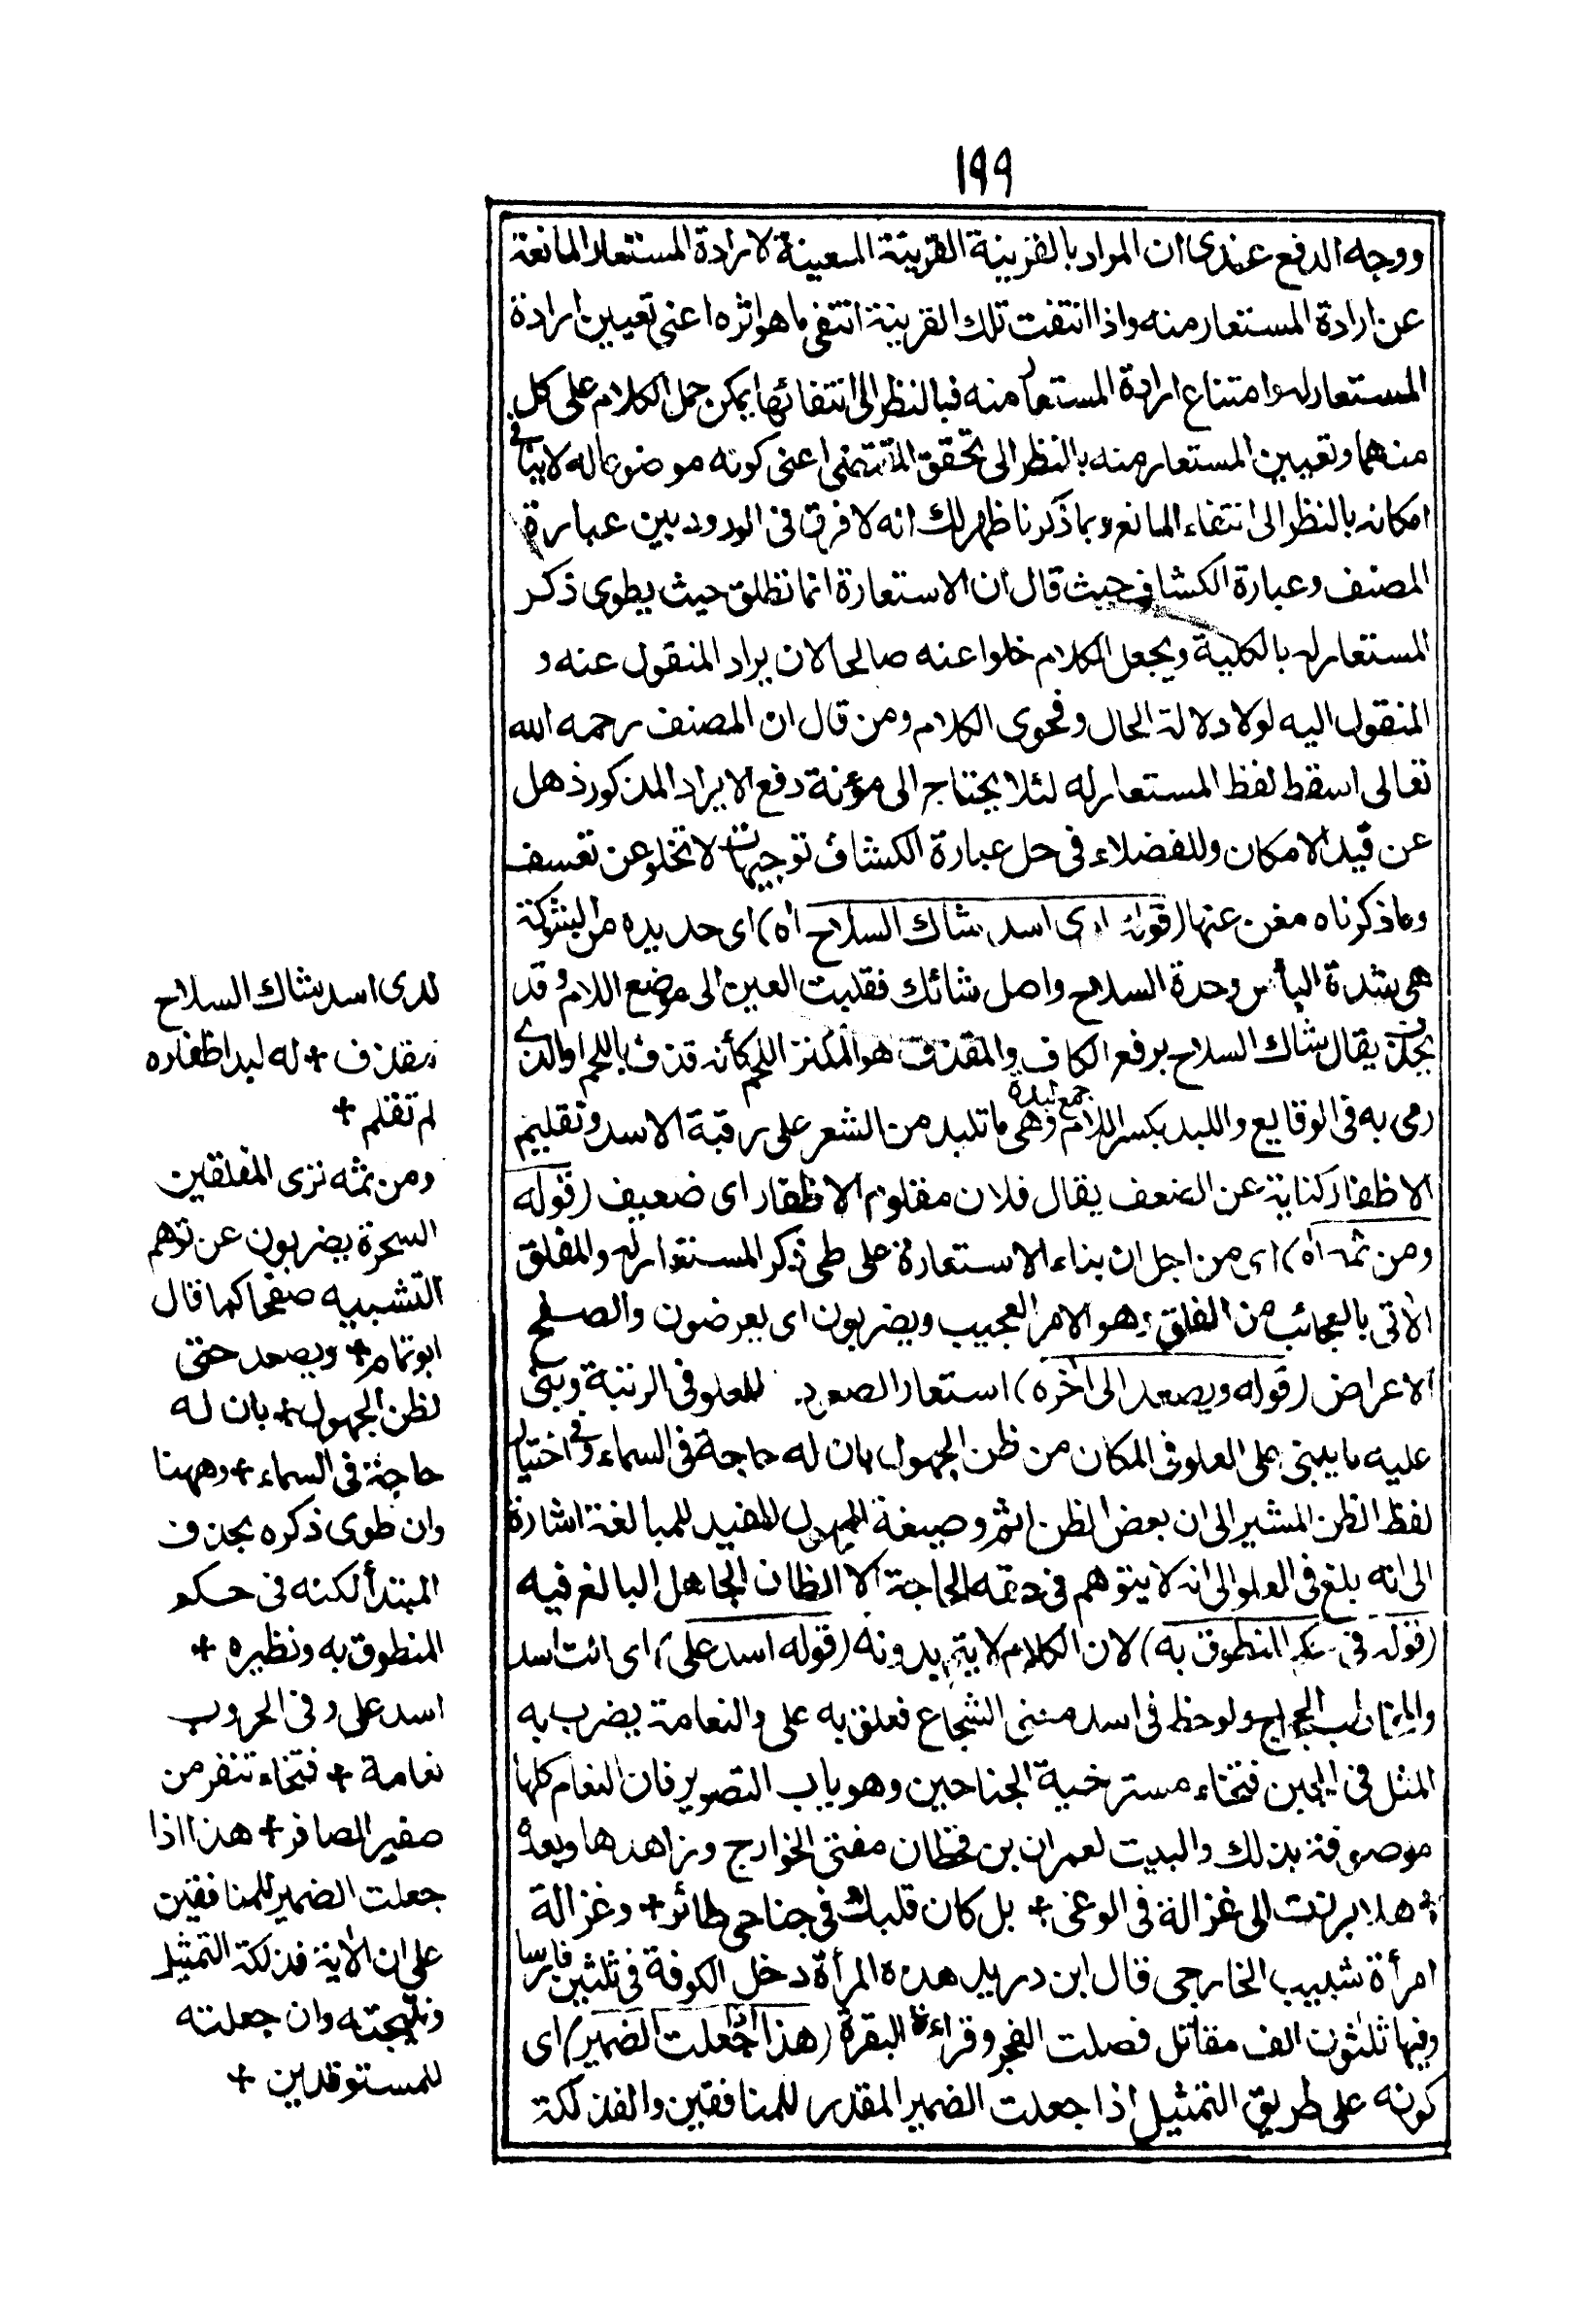 ١٩٩
ووجه الدفع عندى ان المراد بالقرينة القرينة المعينة لارادة المستعار المانعة
عن ارادة المستعار منه واذا انتفت تلك القرينة انتفى ما هو اثره اعنى تعيين ارادة
المستعار له وامتناع ارادة المستعار منه فبالنظر الى انتفائها يمكن حمل الكلام على كل
منهما وتعيين المستعار منه بالنظر الى تحقق المقتضى اعنى كونه موضوعا له لا ينافى
امكانه بالنظر الى انتفاء المانع وبما ذكرنا ظهر لك انه لا فرق فى الورود بين عبارة
المصنف وعبارة الكشاف حيث قال ان الاستعارة انما تطلق حيث يطوى ذكر
المستعار له بالكلية ويجعل الكلام خلوا عنه صالحا لان يراد المنقول عنه و
المنقول اليه لولا دلالة الحال وفحوى الكلام ومن قال ان المصنف رحمه الله
تعالى اسقط لفظ المستعار له لئلا يحتاج الى مؤنة دفع الايراد المذكور ذهل
عن قيد الامكان وللفضلاء فى حل عبارة الكشاف توجيهات لا تخلو عن تعسف
وما ذكرناه مغن عنها (قوله لدى اسد شاك السلاح اه) اى حديده من الشوكة
هى شدة البأس وحدة السلاح واصل شائك فقلبت العين الى موضع اللام وقد
يحذف يقال شاك السلاح برفع الكاف والمقذف هو المكنز اللحم كأنه قذف باللحم او الذى
رمى به فى الوقايع واللبد بكسر اللام جمع لبدة وهى ما تلبد من الشعر على رقبة الاسد وتقليم
الاظفار كناية عن الضعف يقال فلان مقلوم الاظفار اى ضعيف (قوله
ومن ثمه اه) اى من اجل ان بناء الاستعارة على طى ذكر المستعار له والمفلق
الاتى بالعجائب من الفلق وهو الامر العجيب ويضربون اى يعرضون والصفح
الاعراض (قوله ويصعد الى اخره) استعار الصعود للعلو فى الرتبة وبنى
عليه ما يبنى على العلو فى المكان من ظن الجهول بان له حاجة فى السماء وفى اختيار
لفظ الظن المشير الى ان بعض الظن اثم وصيغة الجهول المفيد للمبالغة اشارة
الى انه بلغ فى العلو الى انه لا يتوهم فى حقه الحاجة الا الظان الجاهل البالغ فيه
(قوله فى حكم المنطوق به) لان الكلام لا يتم بدونه (قوله اسد على) اى انت اسد
والمخاطب الحجاج ولوحظ فى اسد معنى الشجاع فعلق به على والنعامة يضرب به
المثل فى الجبن فتخاء مسترخية الجناحين وهو باب التصوير فان النعام كلها
موصوفة بذلك والبيت لعمران بن قحطان مفتى الخوارج وزاهدها وبعده
+ هلا برزت الى غزالة فى الوغى + بل كان قلبك فى جناحى طائر + وغزالة
امرأة شبيب الخارجى قال ابن دريد هذه المرأة دخل الكوفة فى ثلثين فارسا
وفيها ثلثون الف مقاتل فصلت الفجر وقراءة البقرة (هذا اذا جعلت الضمير) اى
كونه على طريق التمثيل اذا جعلت الضمير المقدر للمنافقين والفذلكة
لدى اسد شاك السلاح
مقذف + له لبد اظفاره
لم تقلم +
ومن ثمه نرى المفلقين
السحرة يضربون عن توهم
التشبيه صفحا كما قال
ابو تمام + ويصعد حتى
لظن الجهول + بان له
حاجة فى السماء + وههنا
وان طوى ذكره بحذف
المبتدأ لكنه فى حكم
المنطوق به ونظيره +
اسد على وفى الحروب
نعامة + فتخاء تنفر من
صفير الصافر + هذا اذا
جعلت الضمير للمنافقين
على ان الاية فذلكة التمثيل
ونتيجته وان جعلته
للمستوقدين +